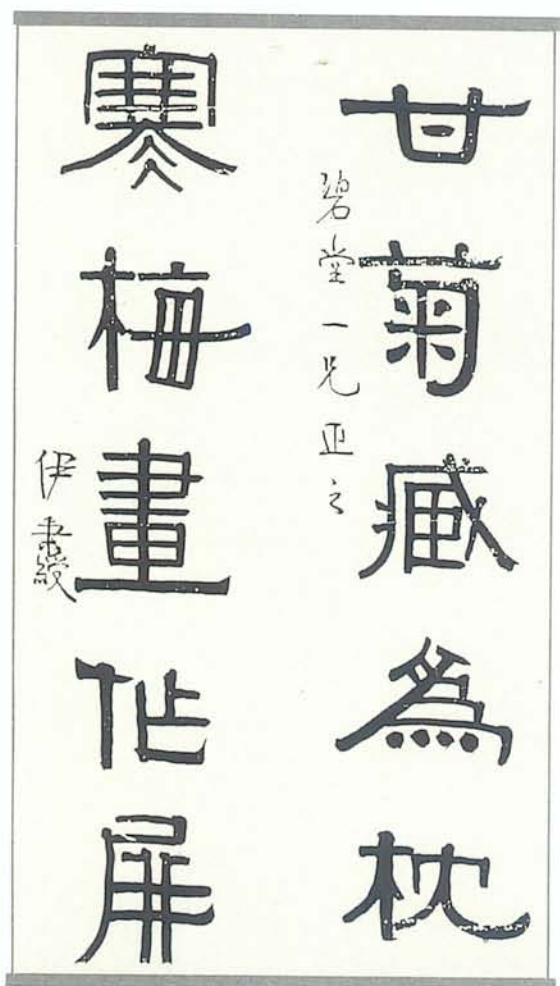 甘菊藏為枕
碧堂一兄正之
寒梅畫作屏
伊秉綬